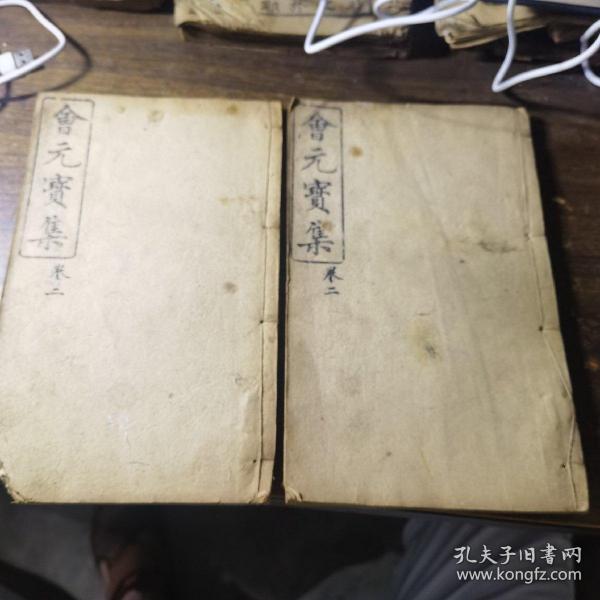 會元寶集
卷二
會元寶集
卷二
孔夫子旧书网
www.kongfz.com